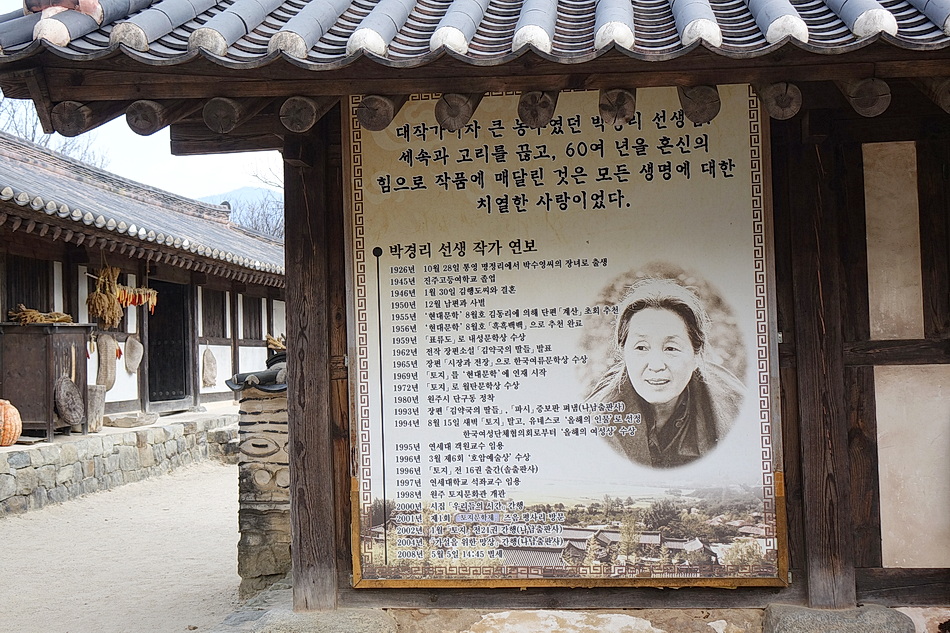 대작가이자 큰 농부였던 박경리 선생님.
세속과 고리를 끊고, 60여 년을 혼신의
힘으로 작품에 매달린 것은 모든 생명에 대한
치열한 사랑이었다.
박경리 선생 작가 연보
1926년 10월 28일 통영 명정리에서 박수영씨의 장녀로 출생
1945년 진주고등여학교 졸업
1946년 1월 30일 김행도씨와 결혼
1950년 12월 남편과 사별
1955년 '현대문학' 8월호 김동리에 의해 단편「계산」초회 추천
1956년 '현대문학' 8월호「흑흑백백」으로 추천 완료
1959년 「표류도」로 내성문학상 수상
1962년 전작 장편소설「김약국의 딸들」발표
1965년 장편「시장과 전장」으로 한국여류문학상 수상
1969년 「토지」를 '현대문학'에 연재 시작
1972년 「토지」로 월탄문학상 수상
1980년 원주시 단구동 정착
1993년 장편「김약국의 딸들」,「파시」증보판 펴냄(나남출판)
1994년 8월 15일 새벽「토지」탈고, 유네스코 '올해의 인물'로 선정
한국여성단체협의회로부터 '올해의 여성상' 수상
1995년 연세대 객원교수 임용
1996년 3월 제6회 '호암예술상' 수상
1996년 「토지」전 16권 출간(솔출판사)
1997년 연세대학교 석좌교수 임용
1998년 원주 토지문화관 개관
2000년 시집「우리들의 시간」간행
2001년 제1회「토지문학제」 평사리
2002년 1월「토지」전21권 간행(나남출판사)
2004년 「가설을 위한 망상」간행(나남출판사)
2008년 5월 5일 14:45 별세